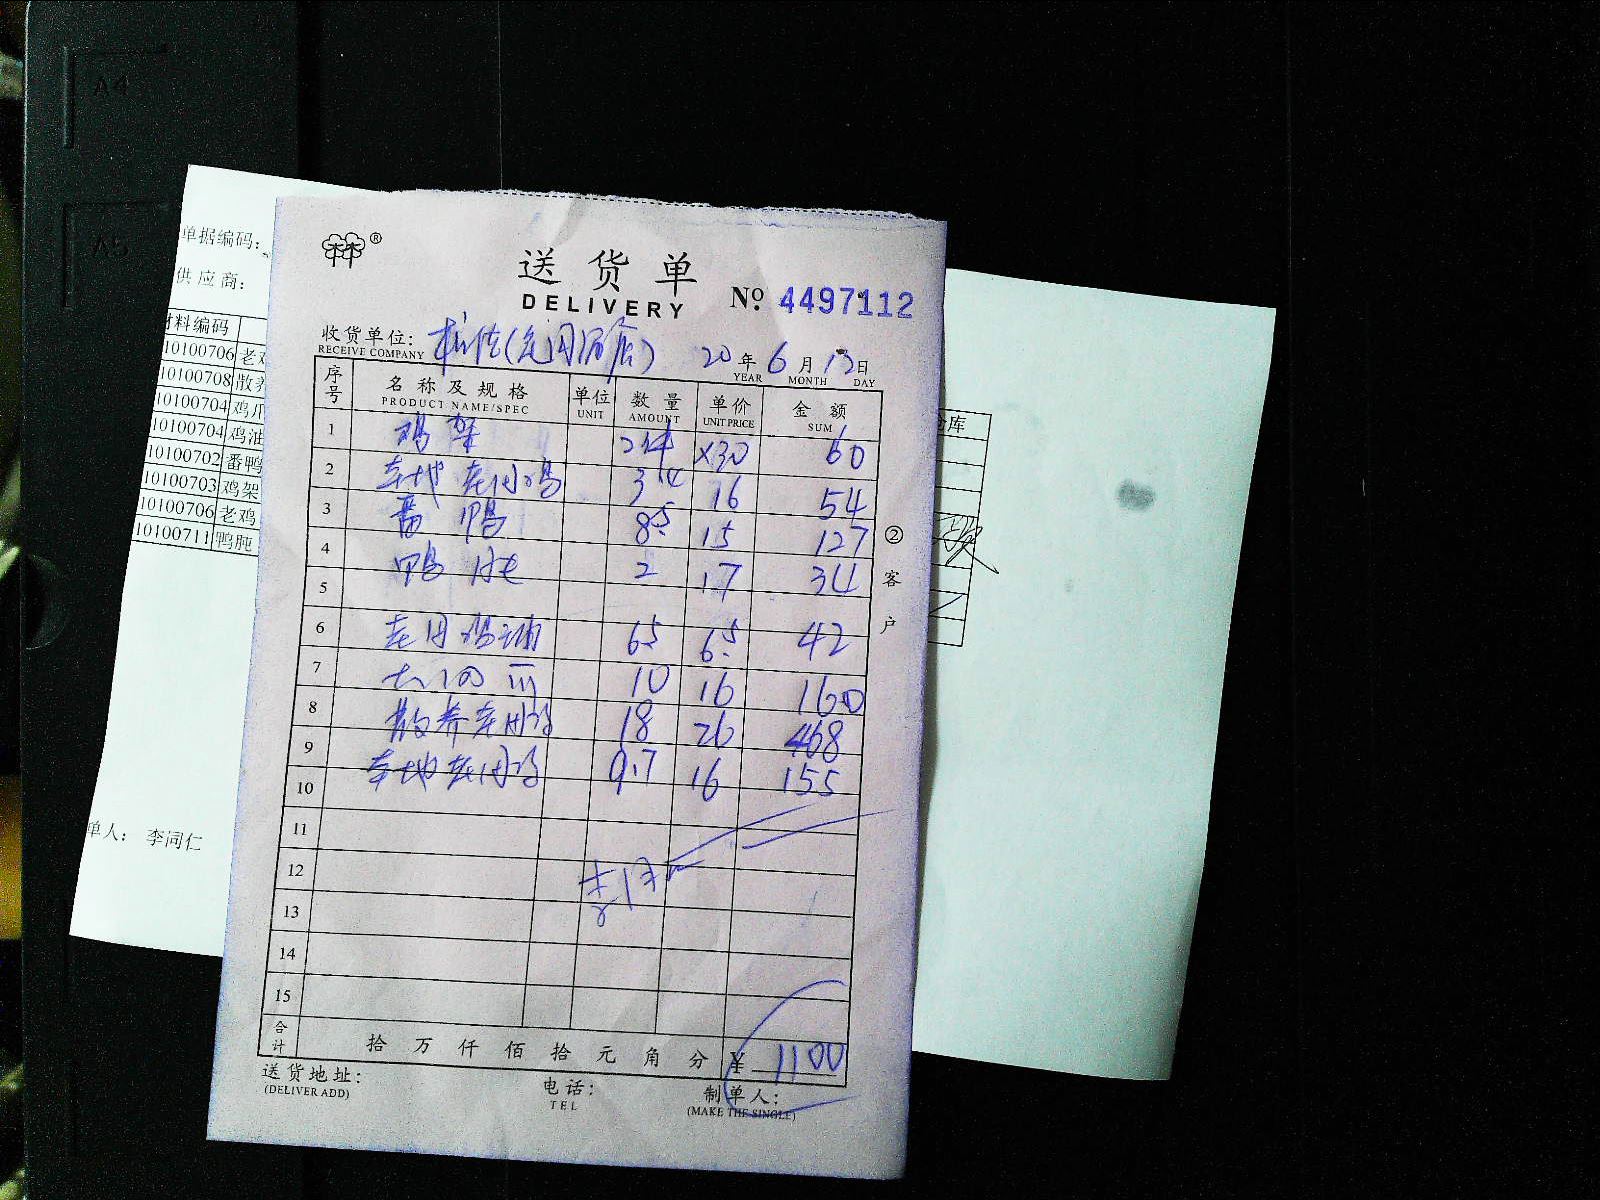 A4
A5
单据编码:
供应商:
材料编码
10100706 老鸡
10100708 散养
10100704 鸡爪
10100704 鸡油
10100702 番鸭
10100703 鸡架
10100706 老鸡
10100711 鸭肫
单人: 李同仁
仓库
®
送货单
DELIVERY
No. 4497112
收货单位:
RECEIVE COMPANY
20 年 6 月 13 日
YEAR MONTH DAY
序号 名称及规格 单位 数量 单价 金额
PRODUCT NAME/SPEC UNIT AMOUNT UNIT PRICE SUM
1 鸡架 ×30 60
2 16 54
3 番鸭 8.5 15 127
4 鸭肫 2 17 34
5
6 6.5 6.5 42
7 10 16 160
8 散养 18 26 468
9 9.7 16 155
10
11
12
13
14
15
合计 拾 万 仟 佰 拾 元 角 分 ¥ 1100
送货地址:
(DELIVER ADD)
电话:
TEL
制单人:
(MAKE THE SINGLE)
②客户